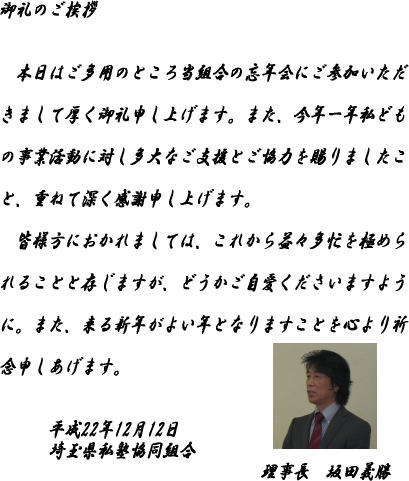 御礼のご挨拶
本日はご多用のところ当組合の忘年会にご参加いただ
きまして厚く御礼申し上げます。また、今年一年私ども
の事業活動に対し多大なご支援とご協力を賜りましたこ
と、重ねて深く感謝申し上げます。
皆様方におかれましては、これから益々多忙を極めら
れることと存じますが、どうかご自愛くださいますよう
に。また、来る新年がよい年となりますことを心より祈
念申しあげます。
平成22年12月12日
埼玉県私塾協同組合
理事長　坂田義勝